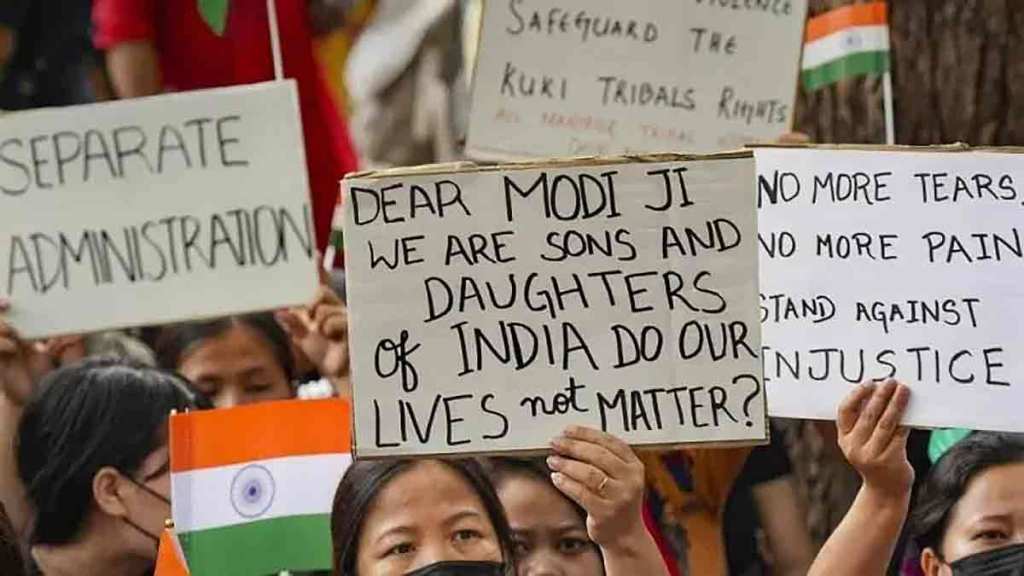 SEPARATE
ADMINISTRATION
VIOLENCE
SAFEGUARD THE
KUKI TRIBALS RIGHTS
ALL MANIPUR TRIBAL
DEAR MODI JI
WE ARE SONS AND
DAUGHTERS
of INDIA DO OUR
LIVES not MATTER?
NO MORE TEARS,
NO MORE PAIN
STAND AGAINST
INJUSTICE